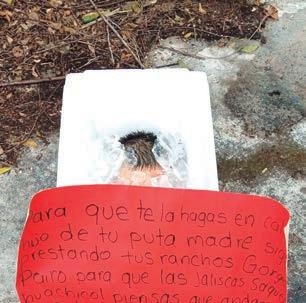 Para que te la hagas en ca
de tu puta madre sig
prestando tus ranchos
para que las Jaliscas saqu
huachicol piensas que